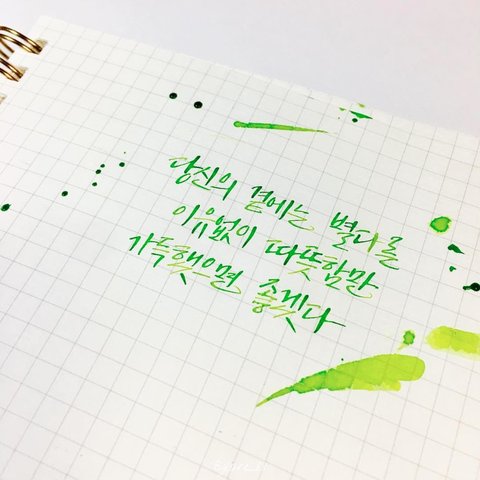 당신의 곁에는 별다를
이유없이 따뜻함만
가득했으면 좋겠다